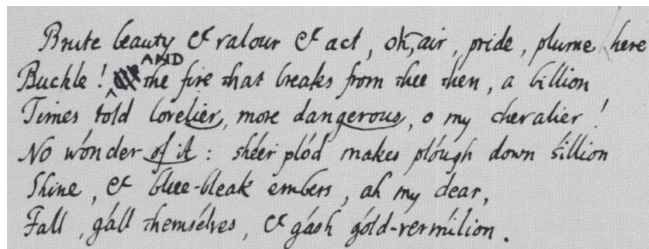 Brute beauty & valour & act, oh, air, pride, plume, here
Buckle! AND the fire that breaks from thee then, a billion
Times told lovelier, more dangerous, o my chevalier!
No wónder of it: shéer plód makes plóugh down síllion
Shine, & blue-bleak embers, ah my dear,
Fall, gáll themsélves, & gásh góld-vermílion.